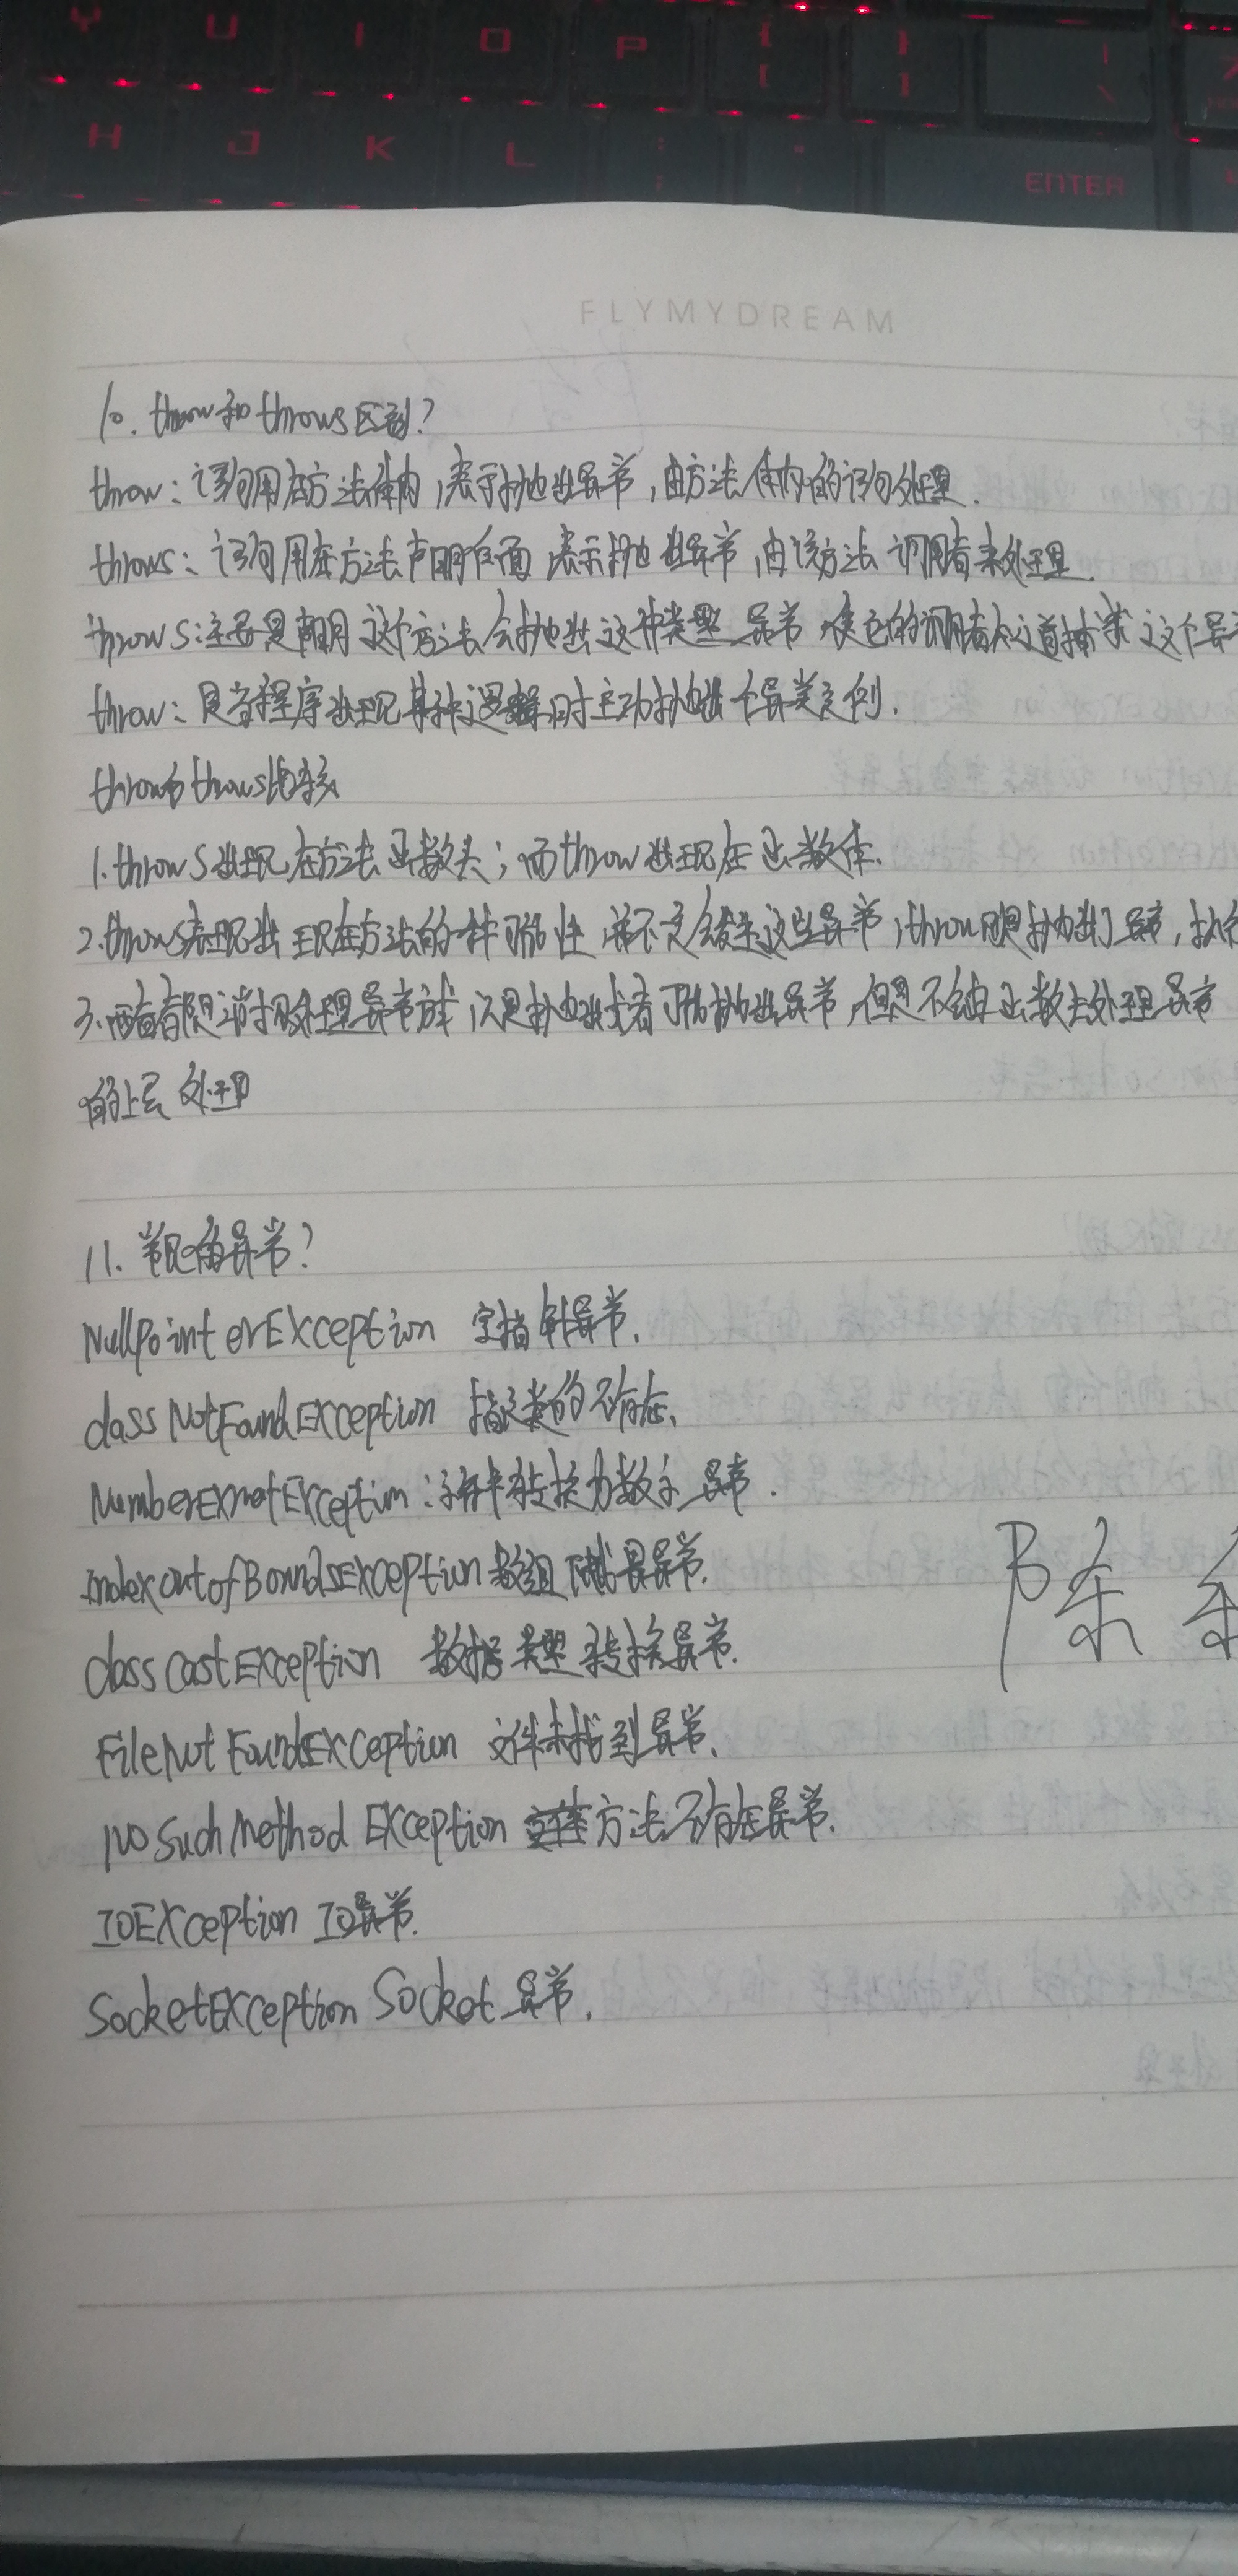 Y U I O P { [ } ] | \
H J K L : ; " ' ENTER
FLYMYDREAM
10. throw和throws区别?
throw:语句用在方法体内,表示抛出异常,由方法体内的语句处理.
throws:语句用在方法声明后面 表示抛出异常,由该方法调用者来处理.
throws:主要是声明这个方法会抛出这种类型异常,使它的调用者知道捕获这个异
throw:是当程序出现某种逻辑时主动抛出个异类实例.
throw与throws比较
1.throws出现在方法函数头;而throw出现在函数体.
2.throws表现出现在方法的一种可能性,并不一定会发生这些异常,throw则是抛出了异常,
3.两者都是消极处理异常方式,只是抛出或者可能抛出异常,但是不会由函数去处理异常
的上层处理
11. 常见的异常?
NullPointerException 空指针异常.
classNotFoundException 指定类的不存在.
NumberExmatException:字符串转换为数字异常.
IndexoutofBoundsException数组下标越界异常.
classCastException 数据类型转换异常.
FileNotFoundException 文件未找到异常.
NoSuchMethodException 方法不存在异常.
IOException IO异常.
SocketException Socket异常.
陈